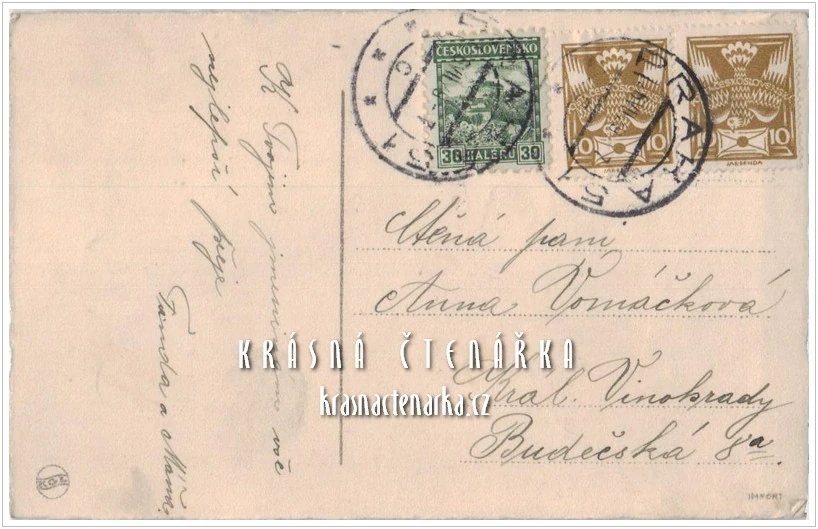 K Tvojim jmeninám vše
nejlepší přeje
Tanda a Máňa.
ČESKOSLOVENSKO
30 HALÉŘŮ 30
ČESKOSLOVENSKO
10 10
JAK.BENDA
ČESKOSLOVENSKO
10 10
JAK.BENDA
PRAHA 51
PRAHA 51
Ctěná paní
Anna Vomáčková
Král. Vinohrady
Budečská 8a
KRÁSNÁ ČTENÁŘKA
krasnactenarka.cz